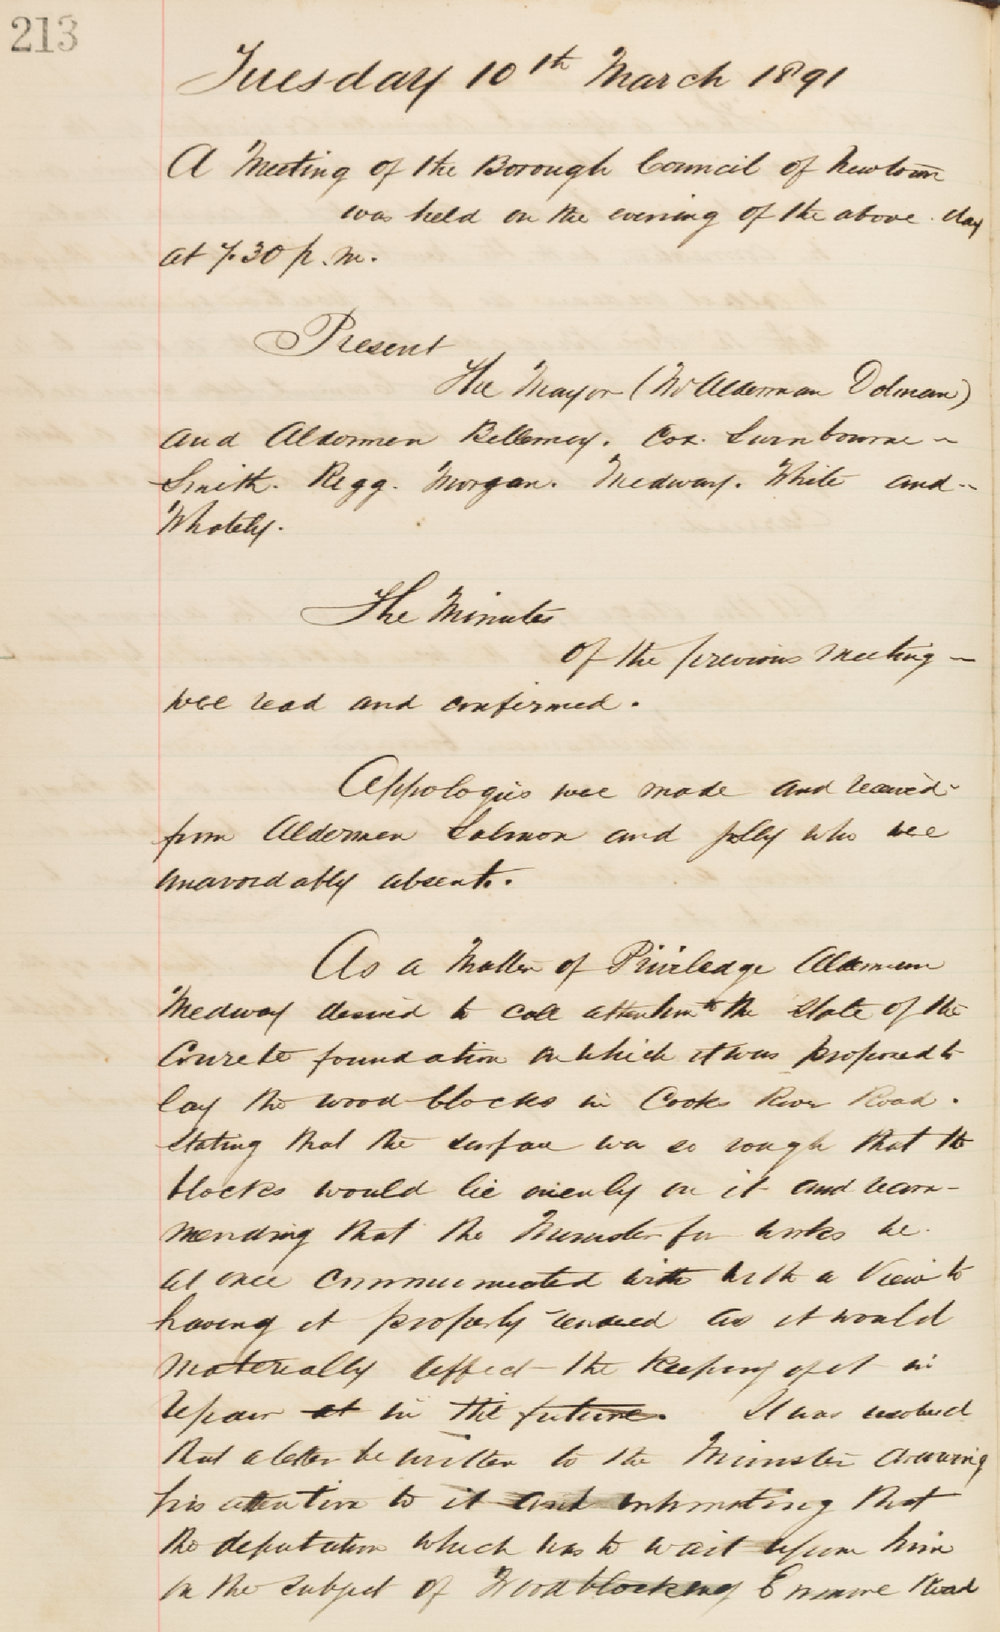 213
Tuesday 10th March 1891
A Meeting of the Borough Council of Newtown
was held on the evening of the above day
at 7.30 p.m.
Present
The Mayor (Mr Alderman Dolman)
and Aldermen Bellemey. Cox. Swinbourne -
Smith. Rigg. Morgan. Medway. White and -
Whately.
The Minutes
of the previous meeting -
were read and confirmed.
Appologies were made and received
from Aldermen Salmon and Jolly who were
unavoidably absent.
As a Matter of Priviledge Alderman
Medway desired to call attention to the state of the
Concrete foundation on which it was proposed to
lay the wood blocks in Cooks River Road.
Stating that the surface was so rough that the
blocks would lie unevenly on it and recom-
mending that the Minister for Works be
at once communicated with with a View to
having it properly rendered as it would
materially affect the Keeping of it in
repair at in the future. It was resolved
that a letter be written to the Minister drawing
his attention to it and intimating that
the deputation which was to wait upon him
on the subject of Woodblocking Enmore Road